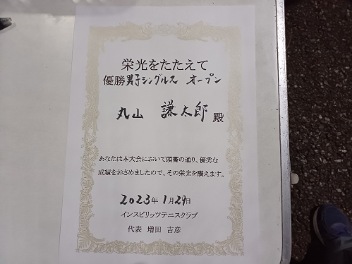 栄光をたたえて
優勝 男子シングルス オープン
丸山 謙太郎 殿
あなたは本大会において頭書の通り、優秀な
成績をおさめましたので、その栄光を讃えます。
2023年 1月29日
インスピリッツテニスクラブ
代表 増田 吉彦